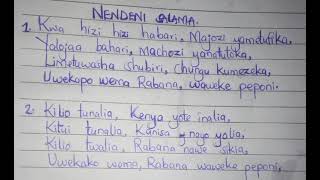 NENDENI SALAMA.
1. Kwa hizi hizi habari, Majozi yametufika,
Yalojaa bahari, Machozi yanatutoka,
Limetuwasha shubiri, Chungu kumezeka,
Uwekapo wema Rabana, waweke peponi.
2. Kibo tunalia, Kenya yote inalia,
Kitui tunalia, Kanisa nayo yalia,
Kilio twalia, Rabana nawe sikia,
Uwekako wema, Rabana waweke peponi.